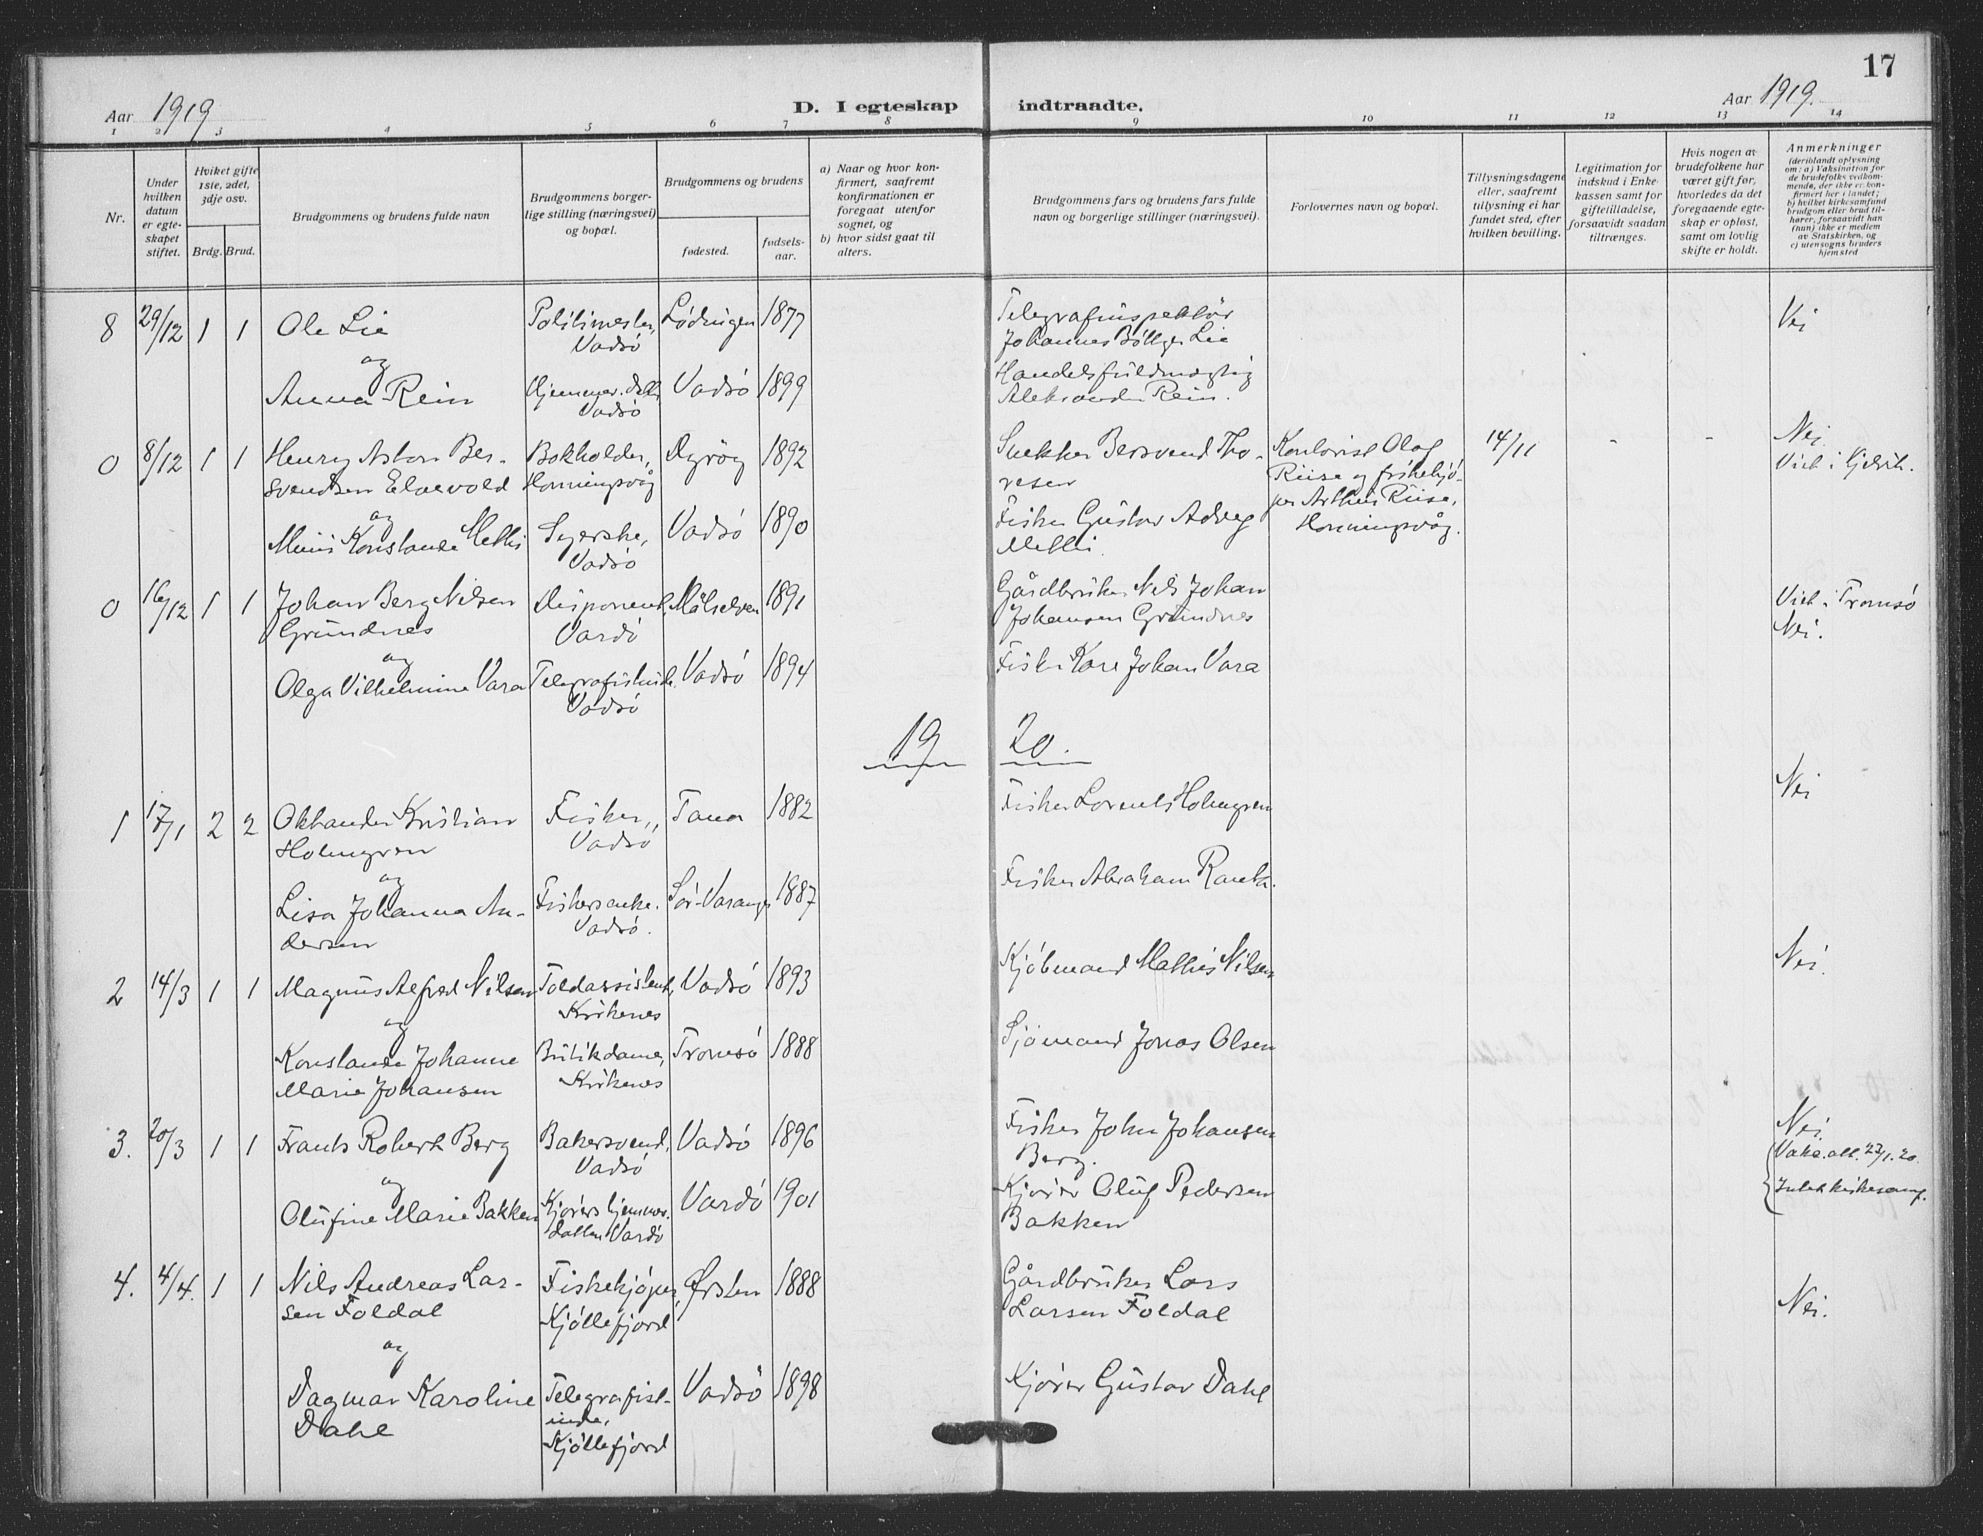 17
Aar 1919
D. I egteskap indtraadte.
Aar 1919.
1 2 3 4 5 6 7 8 9 10 11 12 13 14
Nr.
Under hvilken datum er egteskapet stiftet.
Hvilket gifte 1ste, 2det, 3dje osv.
Brdg. Brud.
Brudgommens og brudens fulde navn
Brudgommens borgerlige stilling (næringsvei) og bopæl.
Brudgommens og brudens
fødested.
fødselsaar.
a) Naar og hvor konfirmert, saafremt konfirmationen er foregaat utenfor sognet, og
b) hvor sidst gaat til alters.
Brudgommens fars og brudens fars fulde navn og borgerlige stillinger (næringsvei).
Forlovernes navn og bopæl.
Tillysningsdagene eller, saafremt tillysning ei har fundet sted, efter hvilken bevilling.
Legitimation for indskud i Enkekassen samt for giftetilladelse, forsaavidt saadan tiltrænges.
Hvis nogen av brudefolkene har været gift før, hvorledes da det foregaaende egteskap er opløst, samt om lovlig skifte er holdt.
Anmerkninger
(deriblandt oplysning om: a) Vaksination for de brudefolks vedkommende, der ikke er konfirmert her i landet; b) hvilket kirkesamfund brudgom eller brud tilhører, forsaavidt han (hun) ikke er medlem av Statskirken, og c) utensogns bruders hjemsted
8 29/12 1 1 Ole Lie Politimester, Vadsö Lödingen 1877 Telegrafinspektör Johannes Böttger Lie Nei
og
Anna Rein Hjemmev. datter Vadsö Vadsö 1899 Handelsfuldmægtig Aleksander Rein.
0 8/12 1 1 Henry Aston Bersvendsen Elvevold Bokholder, Honningsvåg Dyröy 1892 Snekker Bersvend Thoresen Kontorist Olag Riise og fiskekjöper Arthur Riise, Honningsvåg. 14/11 - - Nei. Viet i Kjelvik.
og
Mimi Konstance Methi Syerske, Vadsö Vadsö 1890 Fisker Gustav Adolf Methi.
0 16/12 1 1 Johan Berg Nilsen Grundnes Disponent, Vardö Målselven 1891 Gårdbruker Nils Johan Johansen Grundnes Viet i Tromsö Nei.
og
Olga Vilhelmine Vara Telegrafistinde. Vadsö Vadsö 1894 Fisker Kare Johan Vara
19 20.
1 17/1 2 2 Oktander Kristian Holmgren Fisker, Vadsö Tana 1882 Fisker Lorents Holmgren Nei
og
Lisa Johanna Andersen Fiskersenke. Vadsö. Sör-Varanger 1887 Fisker Abraham
2 14/3 1 1 Magnus Alfred Nilsen Toldassistent, Kirkenes Vadsö 1893 Kjöbmand Mathis Nilsen Nei.
og
Konstance Johanne Marie Johansen Butikdame, Kirkenes Tromsö 1888 Sjömand Jonas Olsen
3. 20/3 1 1 Frants Robert Berg Bakersvend, Vadsö Vadsö 1896 Fisker John Johansen Berg. Nei.
og
Olufine Marie Bakken Kjörers hjemmev. datter Vardö Vardö 1901 Kjörer Oluf Pedersen Bakken Vaks.att. 22/1.20. Intet kirkesamf.
4. 4/4. 1 1 Nils Andreas Larsen Foldal Fiskekjöper, Kjöllefjord Ørsten 1888 Gårdbruker Lars Larsen Foldal Nei.
og
Dagmar Karoline Dahl Telegrafistinde, Kjöllefjord Vadsö 1898 Kjörer Gustav Dahl